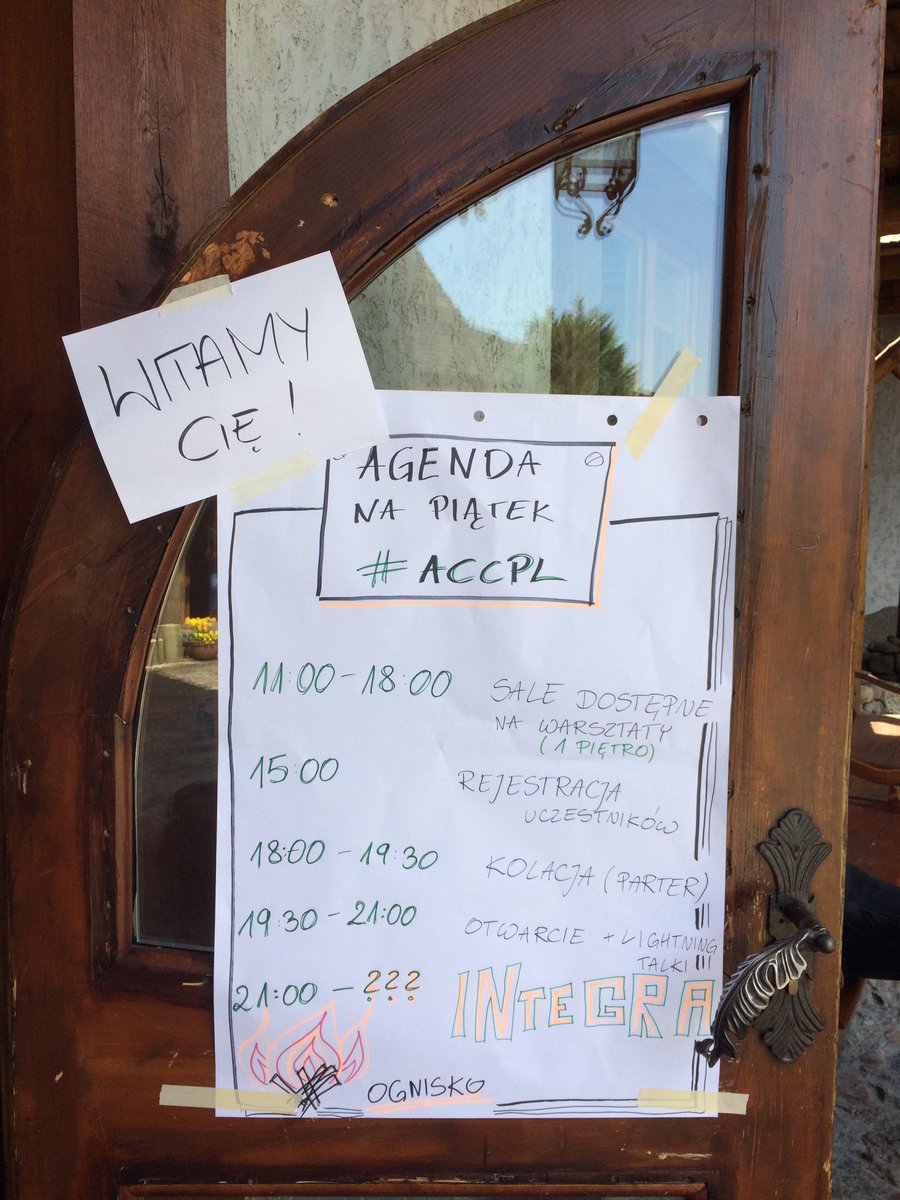 WITAMY
CIĘ!
AGENDA
NA PIĄTEK
#ACCPL
11:00 - 18:00 SALE DOSTĘPNE
NA WARSZTATY
(1 PIĘTRO)
15:00 REJESTRACJA
UCZESTNIKÓW
18:00 - 19:30 KOLACJA (PARTER)
19:30 - 21:00 OTWARCIE + LIGHTNING
TALKI
21:00 - ??? INTEGRA
OGNISKO